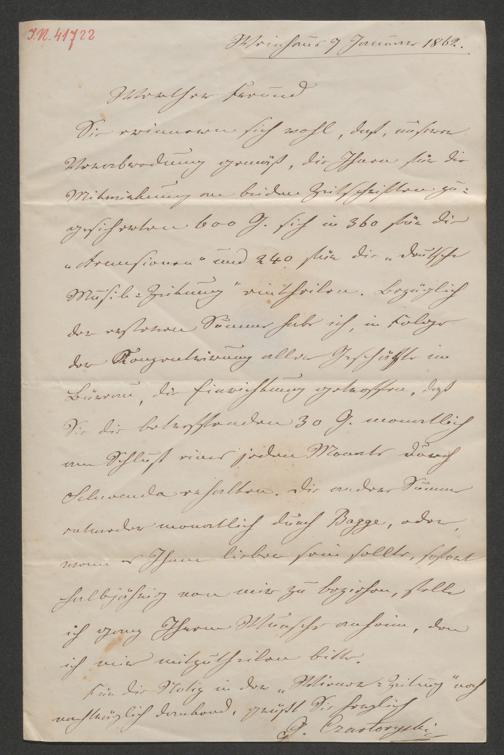 I.N. 41722
Weinhaus 9 Januar 1862.
Werther Freund
Sie erinnern sich wohl, daß, unserer
Verabredung gemäß, die Ihnen für die
Mitwirkung an beiden Zeitschriften zu-
gesicherten 600 G. sich in 360 für die
„Rezensionen" und 240 für die „deutsche
Musik-Zeitung" eintheilen. Bezüglich
der ersteren Summe habe ich, in Folge
der Konzentrirung aller Geschäfte im
Büreau, die Einrichtung getroffen, daß
Sie die betreffenden 30 G. monatlich
am Schluß eines jeden Monats durch
erhalten. Die andere Summe
entweder monatlich durch Bagge, oder,
wenn es Ihnen lieber sein sollte,
halbjährig von mir zu beziehen, stelle
ich ganz Ihrem Wunsche anheim, den
ich mir mitzutheilen bitte.
Für die Notiz in der „Wiener-Zeitung" noch
nachträglich dankend, grüßt Sie herzlich
Czartoryski